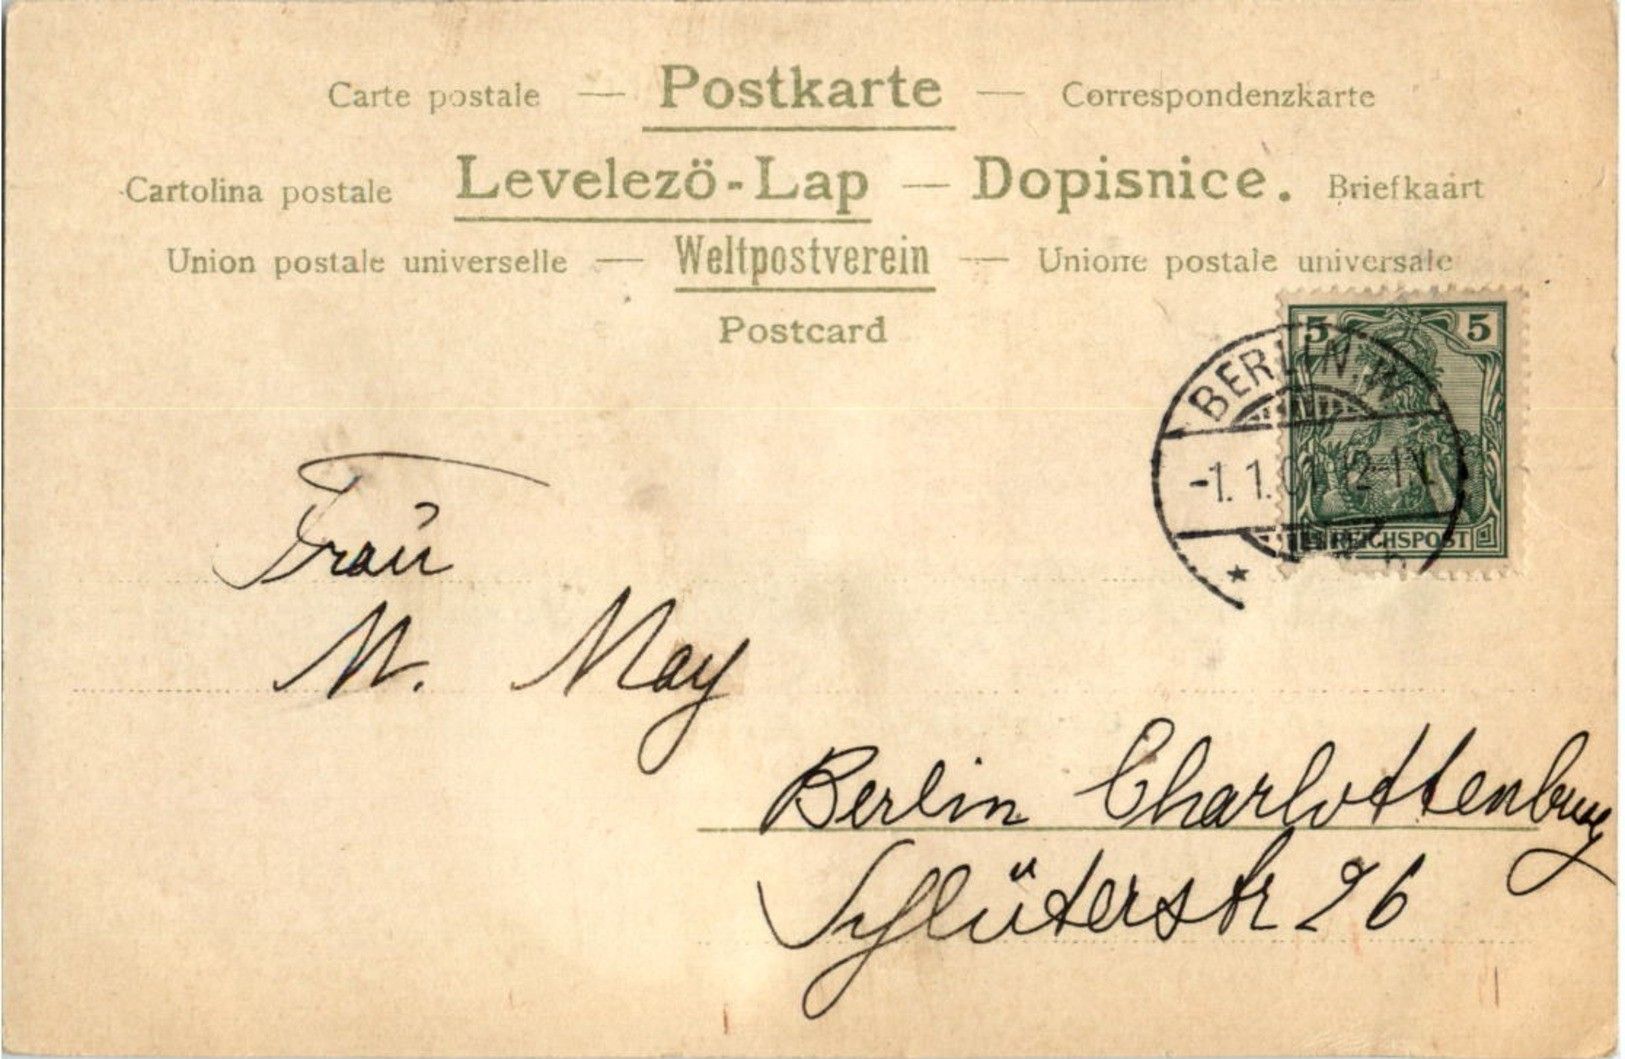 Carte postale — Postkarte — Correspondenzkarte
Cartolina postale Levelezö-Lap — Dopisnice. Briefkaart
Union postale universelle — Weltpostverein — Unione postale universale
Postcard
5 5
BERLIN.W
-1.1.01
REICHSPOST
Frau
M. May
Berlin Charlottenburg
Schlüterstr 26